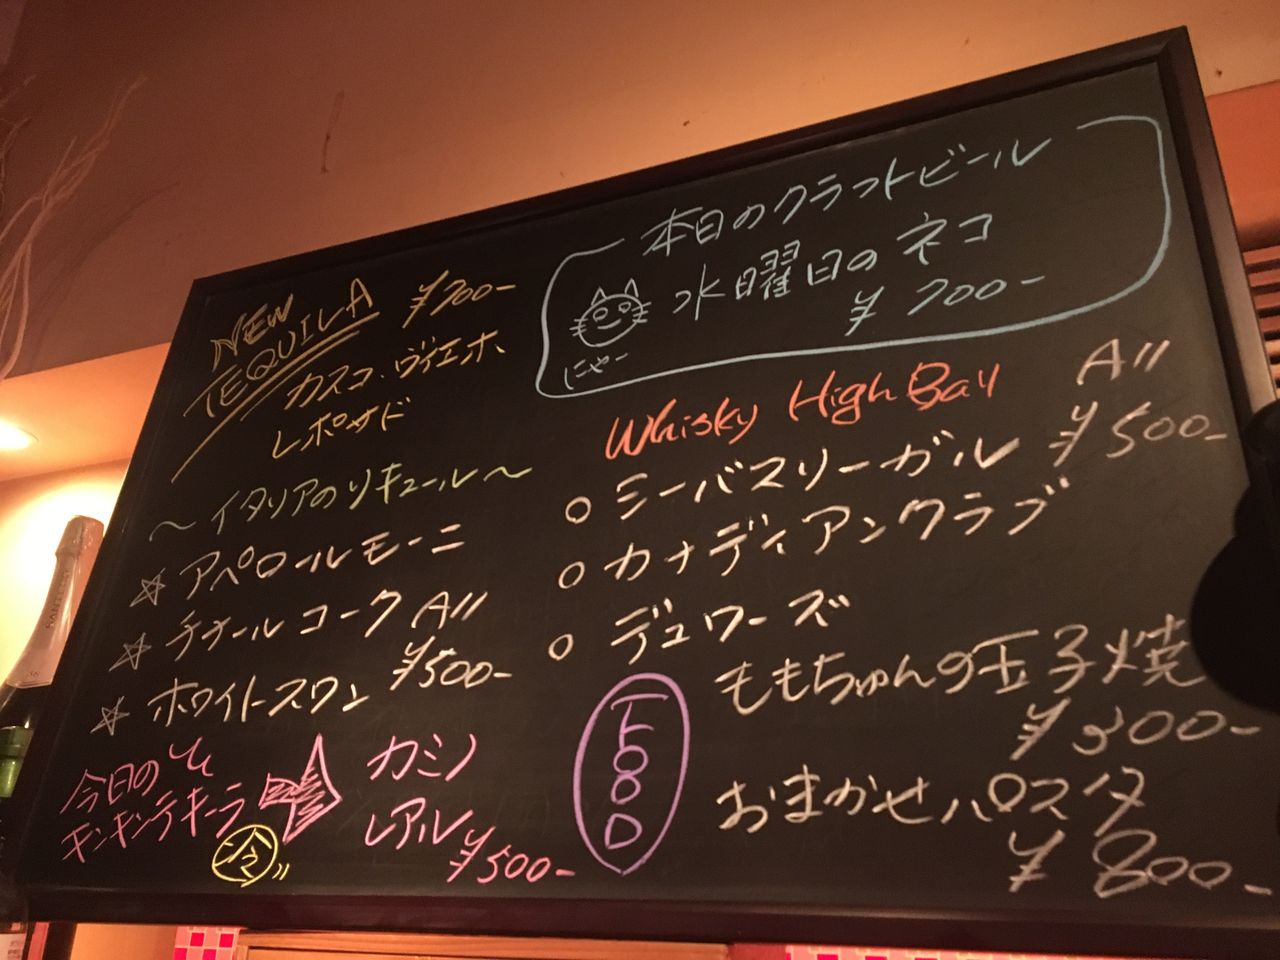 NEW
TEQUILA ¥700-
カスコ・ヴィエホ
レポサド
～イタリアのリキュール～
☆ アペロールモーニ
☆ チナールコーク All
☆ ホワイトスワン ¥500-
今日の
キンキンテキーラ
冷
カミノ
レアル ¥500-
本日のクラフトビール
水曜日のネコ
¥700-
にゃー
Whisky High Ball All
○ シーバスリーガル ¥500-
○ カナディアンクラブ
○ デュワーズ
FOOD
ももちゃんの玉子焼
¥300-
おまかせパスタ
¥800-